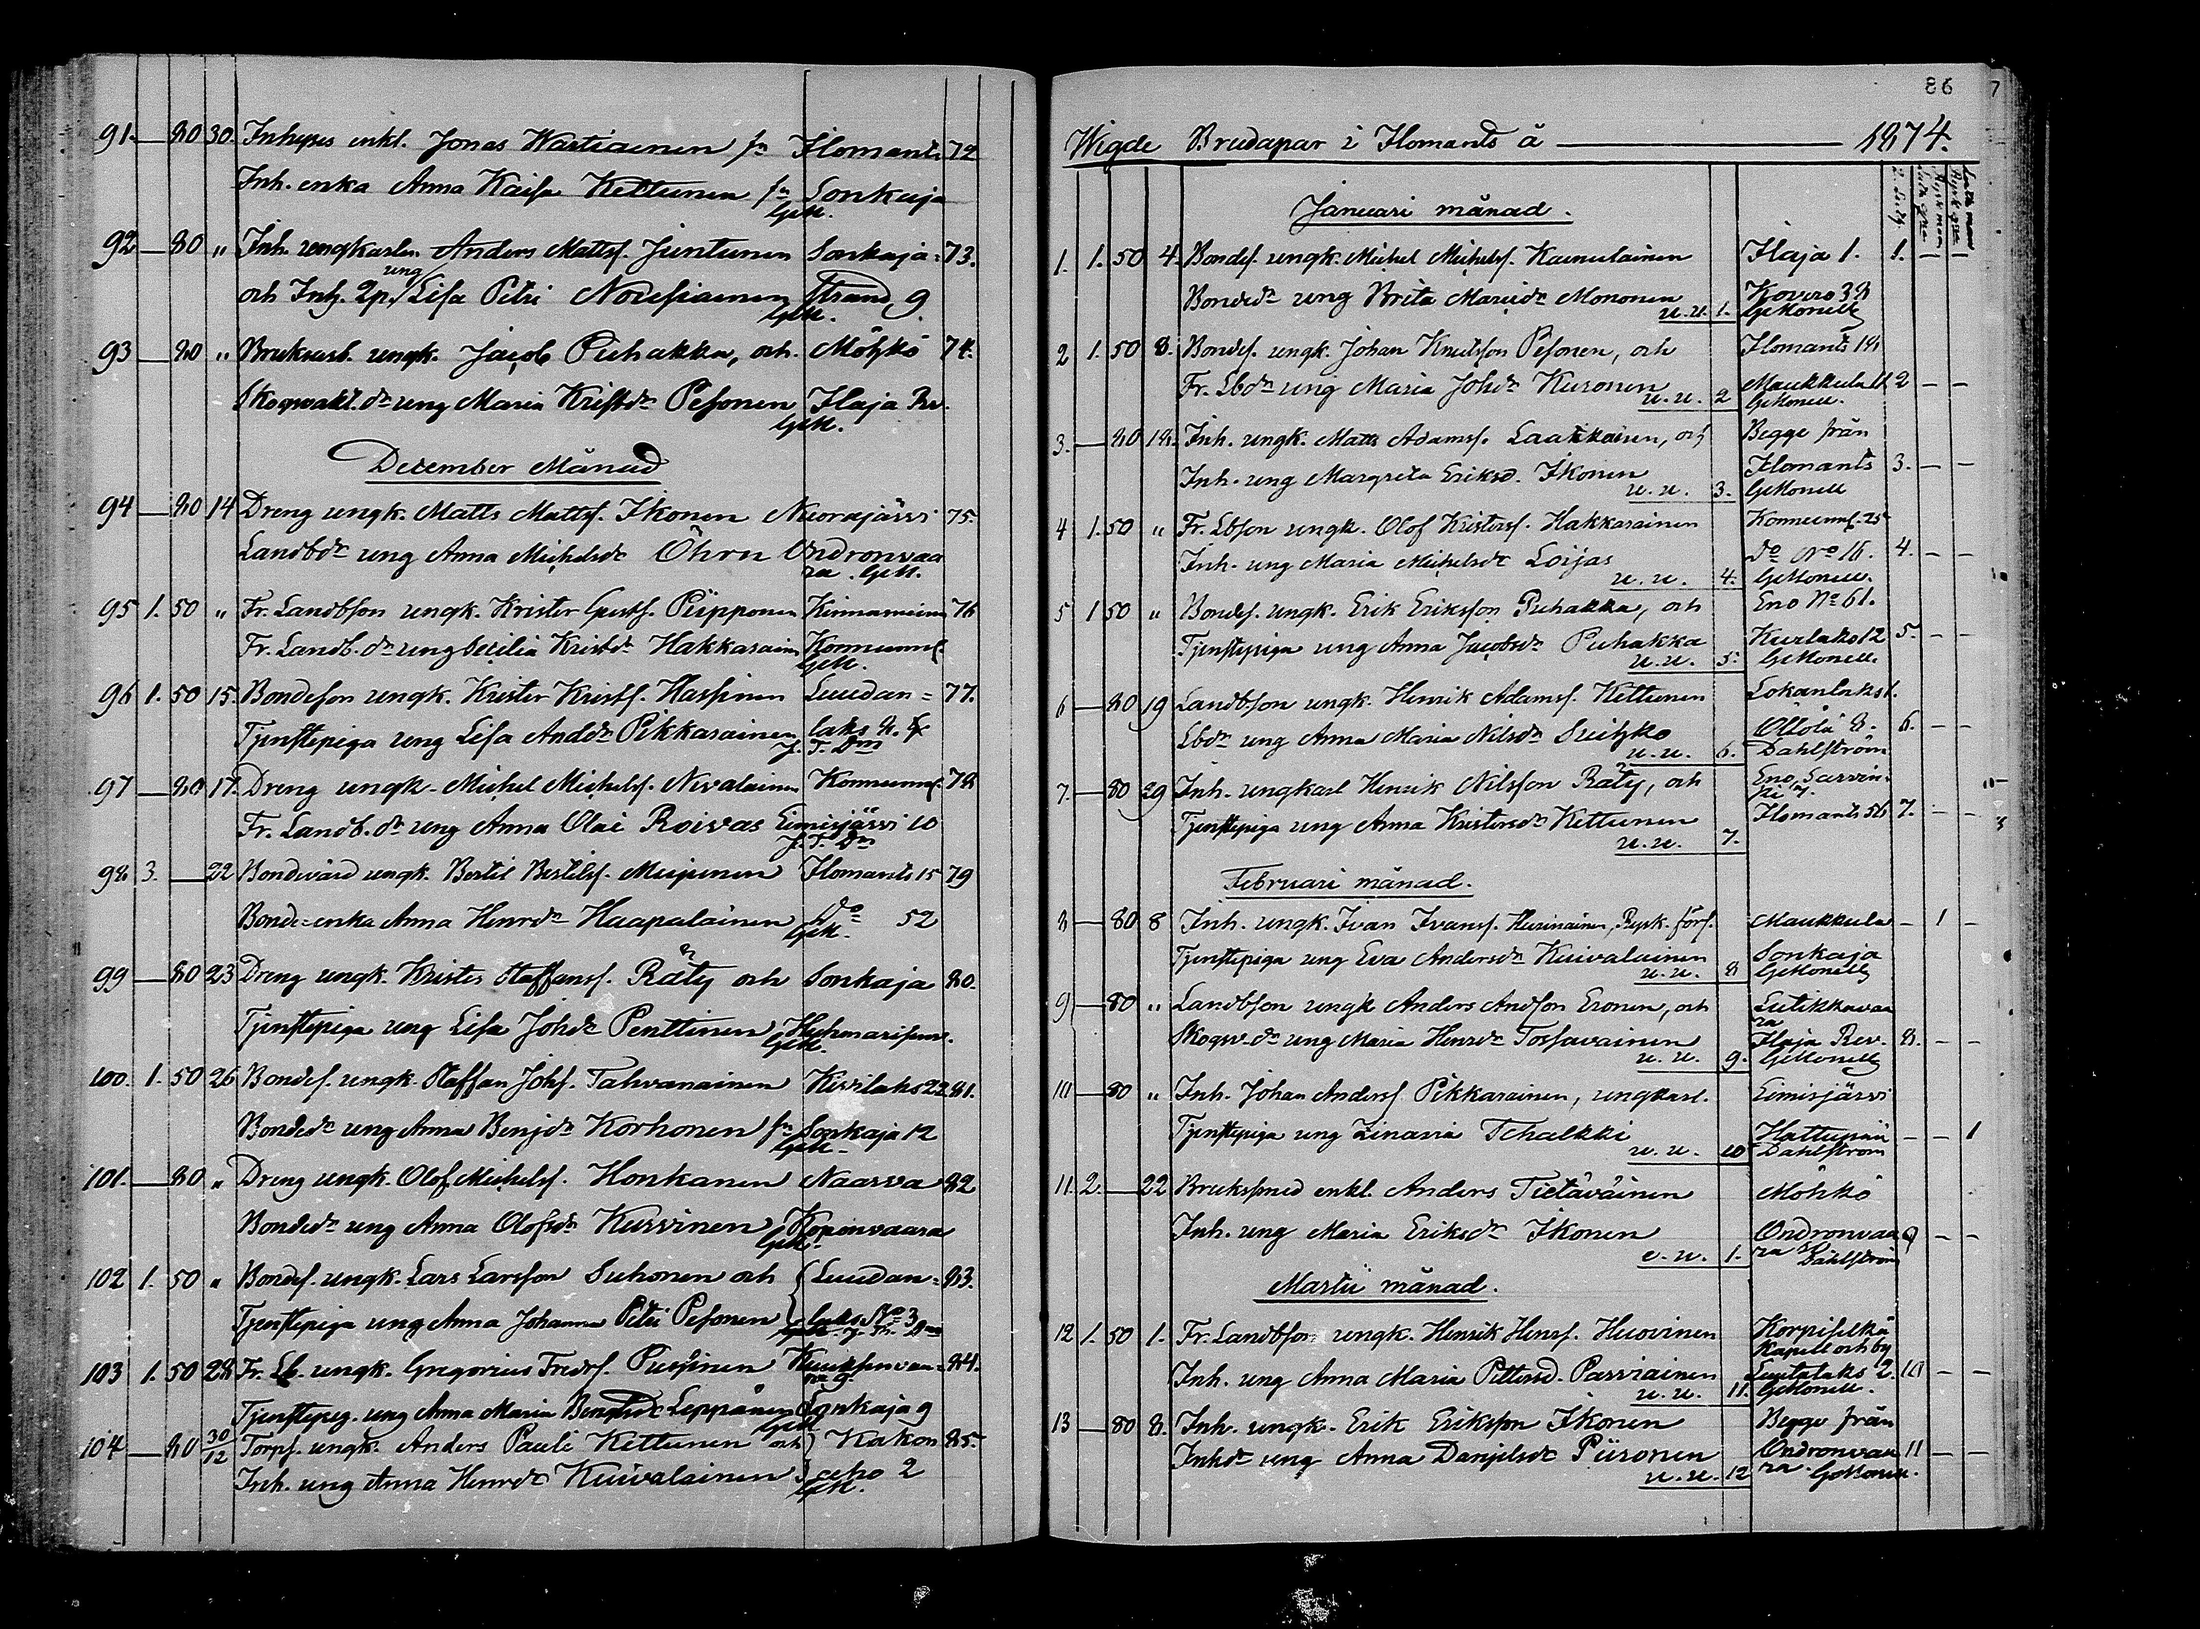 91. — 80 30. Inhyses enkl. Jonas Wartiainen fn Ilomants 72
Inh. enka Anna Kaisa Kettunen fn Sonkaja
GeM.
92 — 80 „ Inh. ungkarlen Anders Mattsf. Juntunen Sonkaja= 73.
och Inh. 2p. ung Lisa Petri Novesiainen strand 9.
GeM.
93 — 80 „ Bruksarb. ungk. Jacob Puhakka, och Möhkö 74.
Skogwakt. dr ung Maria Kristdr Pesonen Ilaja Rev.
GeM.
December Månad
94 — 80 14 Dreng ungk. Matts Mattsf. Ikonen Nuorajärvi 75.
Landbdr ung Anna Michelsdr Öhrn Ondronvaa
ra. GeM.
95 1. 50 „ Fr. Landbson ungk. Krister Gustf. Piipponen Kinnasniemi 76
Fr. Landb. dr ung Cecilia Kristdr Hakkarain Konnunn.
GeM.
96 1. 50 15. Bondeson ungk. Krister Kristf. Hassinen Luudan= 77.
Tjenstepiga ung Lisa Anddr Pikkarainen laks N. 4
J. T. Dm
97 — 80 17. Dreng ungk. Michel Michelsf. Nevalainen Konnunn. 78
Fr. Landb. dr ung Anna Olai Roivas Eimisjärvi 10
J. T. Dm
98 3. — 22 Bondevärd ungk. Bertil Bertilsf. Mujunen Ilomants 15 79
Bonde=enka Anna Henrdr Haapalainen do 52
GeM.
99 — 80 23 Dreng ungk. Krister Staffansf. Räty och Sonkaja 80.
Tjenstepiga ung Lisa Johdr Penttinen Huhmarisuv.
GeM.
100. 1. 50 26 Bondef. ungk. Staffan Johf. Tahvanainen Kivilaks 22. 81.
Bondedr ung Anna Benjdr Korhonen fn Sonkaja 12
GeM.
101. — 80 „ Dreng ungk. Olof Michelsf. Honkanen Naarva 82
Bondedr ung Anna Olofsdr Kurvinen Koponvaara
GeM.
102 1. 50 „ Bondef. ungk. Lars Larsson Suhonen och Luudan= 83.
Tjenstepiga ung Anna Johanna Petri Pesonen laks No 3
103 1. 50 28 Fr. Lb. ungk. Gregorius Fredrf. Pussinen Kuuksenvaa= 84.
ra 9.
Tjenstepig. ung Anna Maria Bengtsdr Leppänen Sonkaja 9
GeM.
104 — 80 30/12 Torpf. ungk. Anders Pauli Kettunen och Kakon 85.
Inh. ung Anna Henrdr Kuivalainen aho 2
GeM.
86
7
Wigde Brudapar i Ilomants å — 1874.
Januari månad.
1. 1. 50 4. Bondef. ungk. Michel Michelsf. Kaunulainen Ilaja 1. 1. — —
Bondedr ung Brita Mariidr Mononen Kovero 38
u. u. 1. GeMonell
2 1. 50 8. Bondef. ungk. Johan Knutsson Pesonen, och Ilomants 18
Fr. Lbdr ung Maria Johdr Kuronen Maukkula 11 2 — —
u. u. 2 GeMonell.
3. — 80 18. Inh. ungk. Matts Adamsf. Laakkoinen, och Begge från
Inh. ung Margreta Eriksd. Ikonen Ilomants 3. — —
u. u. 3. GeMonell
4 1. 50 „ Fr. Lbson ungk. Olof Kristersf. Hakkarainen Konnunn. 25
Inh. ung Maria Michelsdr Loijas do No 16. 4. — —
u. u. 4. GeMonell.
5 1 50 „ Bondef. ungk. Erik Eriksson Puhakka, och Eno No 61.
Tjenstepiga ung Anna Jacobsdr Puhakka Kuulaks 12 5. — —
u. u. 5. GeMonell.
6 — 80 19 Landbson ungk. Henrik Adamsf. Kettunen Lokanlaks 1.
Lbdr ung Anna Maria Nilsdr Suihko Ollola 8. 6. — —
u. u. 6. Dahlström
7. — 80 29 Inh. ungkarl Henrik Nilsson Räty, och Eno, Sarvin=
ki 7.
Tjenstepiga ung Anna Kristersdr Kettunen Ilomants 56 7. — —
u. u. 7.
Februari månad.
8 — 80 8 Inh. ungk. Ivan Ivansf. Hurinainen, Rysk. förs. Maukkula — 1 —
Tjenstepiga ung Eva Andersdr Kuivalainen Sonkaja
u. u. 8 GeMonell
9 — 80 „ Landbson ungk Anders Andson Eronen, och Lutikkavaa
ra
Skogw. dr ung Maria Henrdr Tossavainen Ilaja Rev. 8. — —
u. u. 9. GeMonell
10 — 80 „ Inh. Johan Andersf. Pikkarainen, ungkarl. Eimisjärvi
Tjenstepiga ung Zinaria Tchalkki Hattupää — — 1
u. u. 10 Dahlström
11. 2. — 22 Bruksmed enkl. Anders Tietäväinen Möhkö
Inh. ung Maria Eriksdr Ikonen Ondronvaa 9 — —
e. u. 1. ra Dahlström
Martii månad.
12 1. 50 1. Fr. Landbson ungk. Henrik Henrf. Huovinen Korpiselkä
Kapell och by
Inh. ung Anna Maria Pettersd. Parviainen Luutalaks 2. 10 — —
u. u. 11. GeMonell.
13 — 80 8. Inh. ungk. Erik Eriksson Ikonen Begge från
Inhdr ung Anna Danjelsdr Piironen Ondronvaa 11 — —
u. u. 12 ra GeMonell.